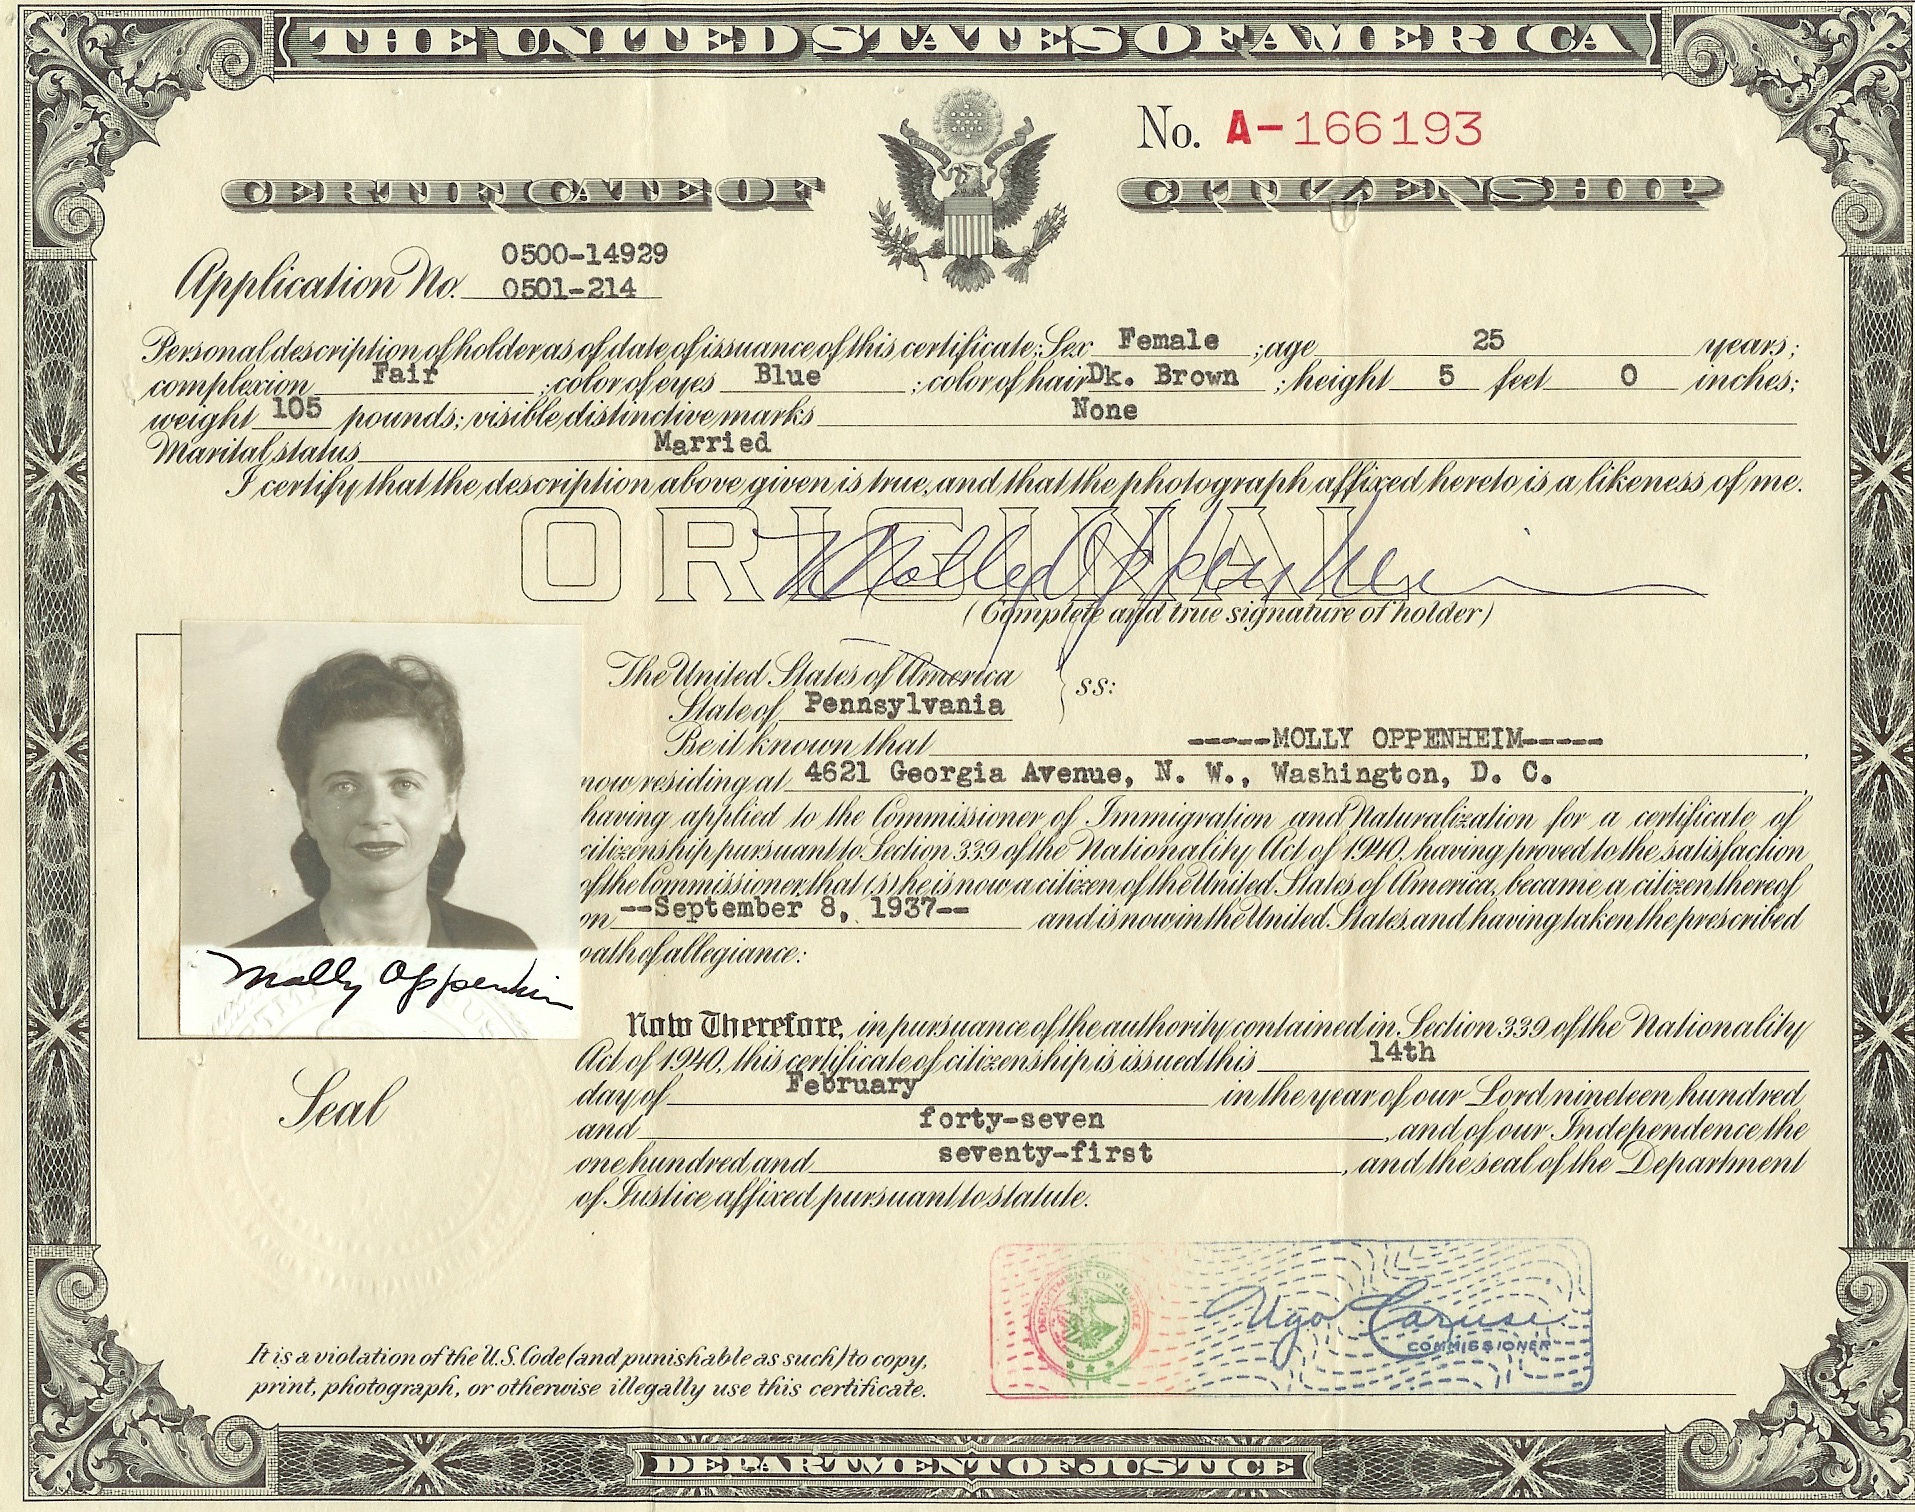 THE UNITED STATES OF AMERICA
No. A-166193
CERTIFICATE OF CITIZENSHIP
0500-14929
Application No. 0501-214
Personal description of holder as of date of issuance of this certificate: Sex Female ; age 25 years;
complexion Fair ; color of eyes Blue ; color of hair Dk. Brown ; height 5 feet 0 inches;
weight 105 pounds; visible distinctive marks None
Marital status Married
I certify that the description above given is true, and that the photograph affixed hereto is a likeness of me.
ORIGINAL
Molly Oppenheim
(Complete and true signature of holder)
The United States of America } ss:
State of Pennsylvania
Be it known that -----MOLLY OPPENHEIM-----,
now residing at 4621 Georgia Avenue, N. W., Washington, D. C.,
having applied to the Commissioner of Immigration and Naturalization for a certificate of
citizenship pursuant to Section 339 of the Nationality Act of 1940, having proved to the satisfaction
of the Commissioner, that (s)he is now a citizen of the United States of America, became a citizen thereof
on --September 8, 1937-- and is now in the United States, and having taken the prescribed
oath of allegiance:
Molly Oppenheim
Now Therefore, in pursuance of the authority contained in Section 339 of the Nationality
Act of 1940, this certificate of citizenship is issued this 14th
day of February in the year of our Lord nineteen hundred
and forty-seven, and of our Independence the
one hundred and seventy-first, and the seal of the Department
of Justice affixed pursuant to statute.
Seal
DEPARTMENT OF JUSTICE
Ugo Carusi
COMMISSIONER
It is a violation of the U.S. Code (and punishable as such) to copy,
print, photograph, or otherwise illegally use this certificate.
DEPARTMENT OF JUSTICE